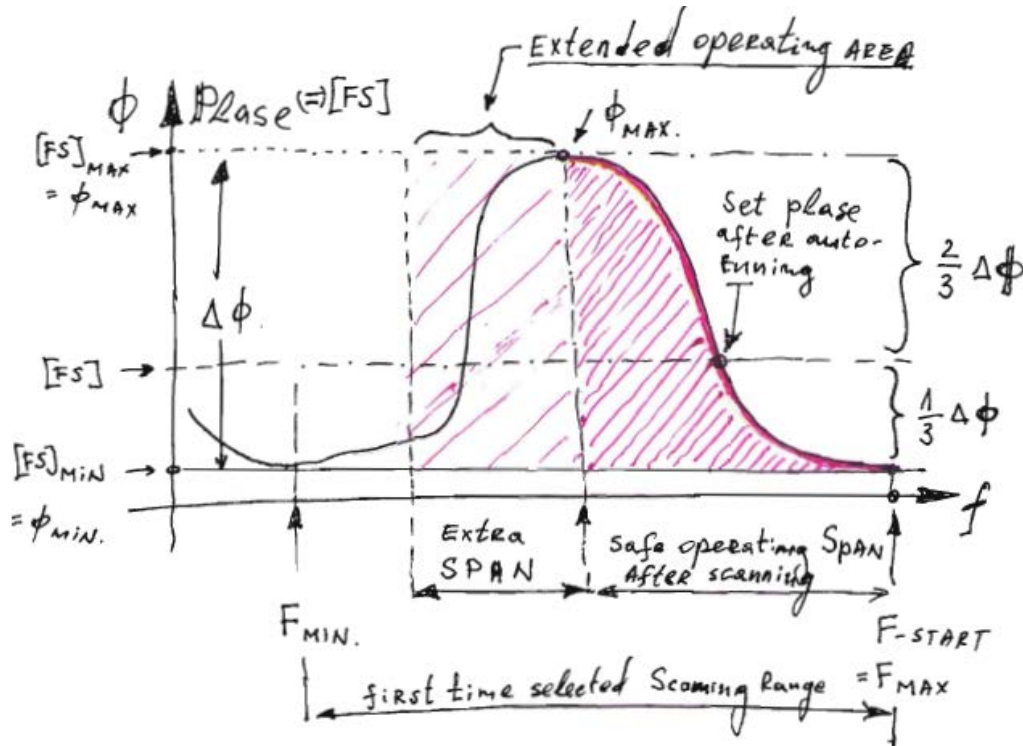 Extended operating AREA
ϕ Phase (=) [FS]
ϕ MAX.
[FS] MAX
= ϕ MAX
Set phase
after auto-
tunning
2/3 Δϕ
Δϕ.
[FS]
1/3 Δϕ
[FS] MIN
= ϕ MIN.
f
Extra
SPAN
Safe operating SPAN
After scanning
F MIN.
F-START
= F MAX
first time selected Scanning Range